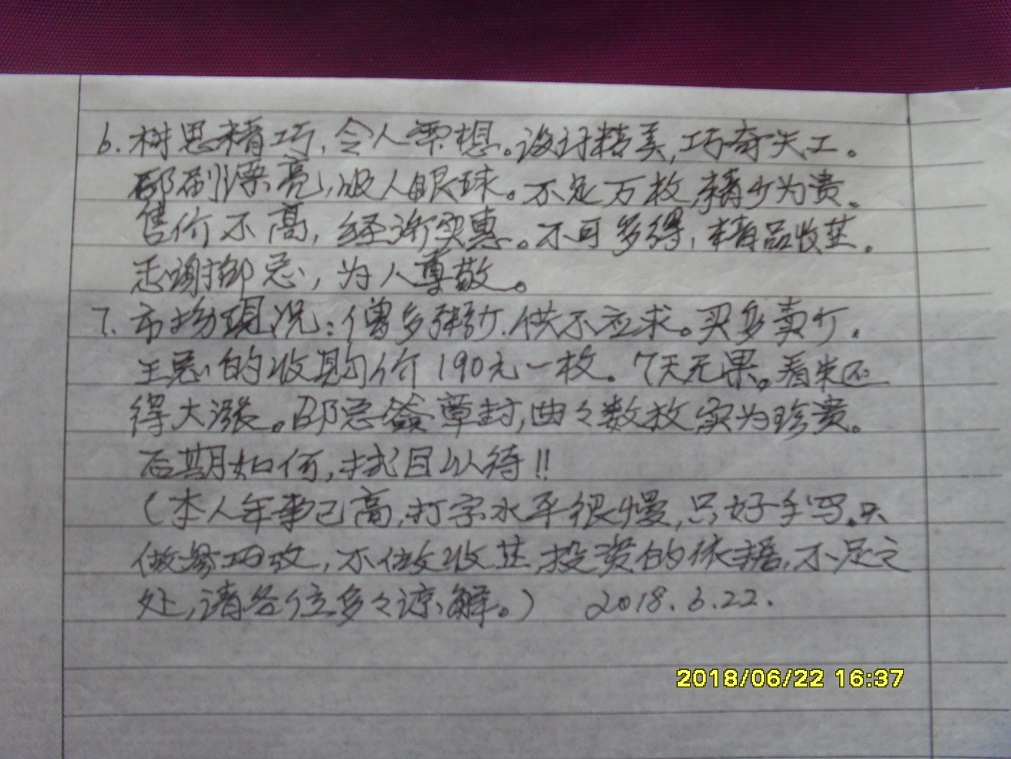 6. 树思精巧,令人票想。设计精美,巧奇失工。
邵刷漂亮,吸人眼球。不足万枚,精少为贵。
售价不高,经济实惠。不可多得,精品收芷。
志谢邵总,为人尊敬。
7. 市场现况:僧多粥少.供不应求。买多卖少,
王总的收购价190元一枚。7天无果。看来还
得大涨。邵总签章封,曲々数枚实为珍贵。
后期如何,拭目以待!!
(本人年事已高,打字水平很慢,只好手写。只
做参巧攷,不做收芷,投资的依据,不足之
处,请各位多々谅解。) 2018.6.22.
2018/06/22 16:37